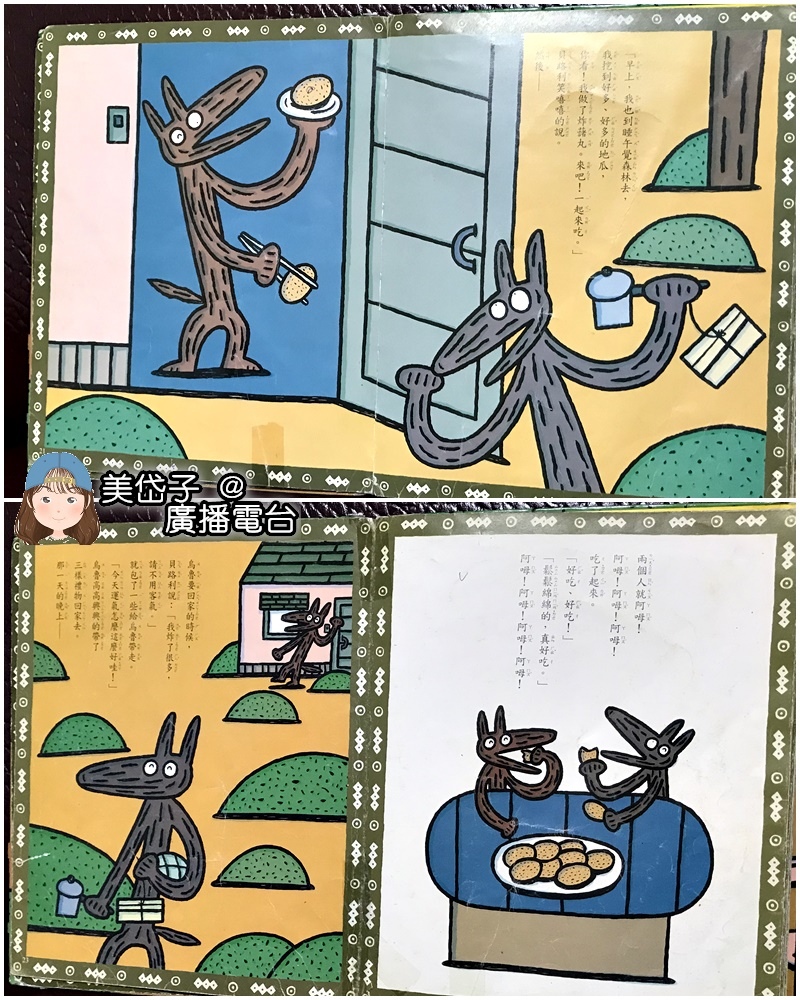 「早上，我也到睡午覺森林去，
我挖到好多、好多的地瓜，
你看！我做了炸藷丸。來吧！一起來吃。」
貝路利笑嘻嘻的說。
然後——
美岱子 @
廣播電台
兩個人就阿嗚！
阿嗚！阿嗚！阿嗚！
吃了起來。
「好吃、好吃！」
「鬆鬆綿綿的，真好吃。」
阿嗚！阿嗚！阿嗚！阿嗚！
烏魯要回家的時候，
貝路利說：「我炸了很多，
請不用客氣。」
就包了一些給烏魯帶走。
「今天運氣怎麼這麼好哇！」
烏魯高高興興的帶了
三樣禮物回家去。
那一天的晚上——
23